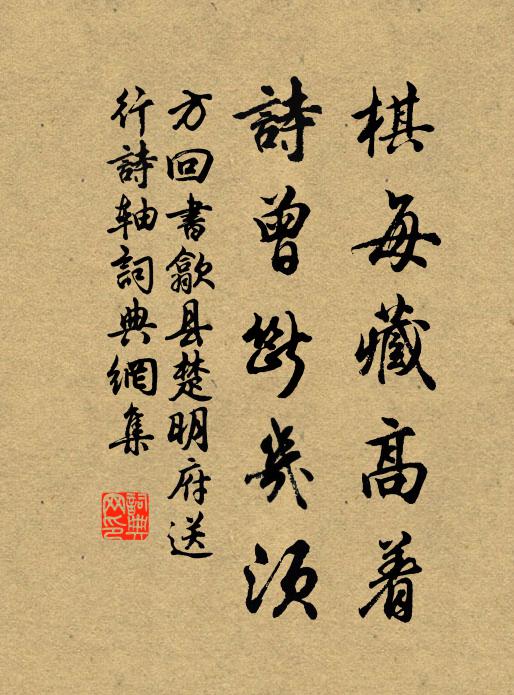 棋每藏高着
詩曾斷幾須
方回書歙县楚明府送
行詩轴詞典網集
詞典网印